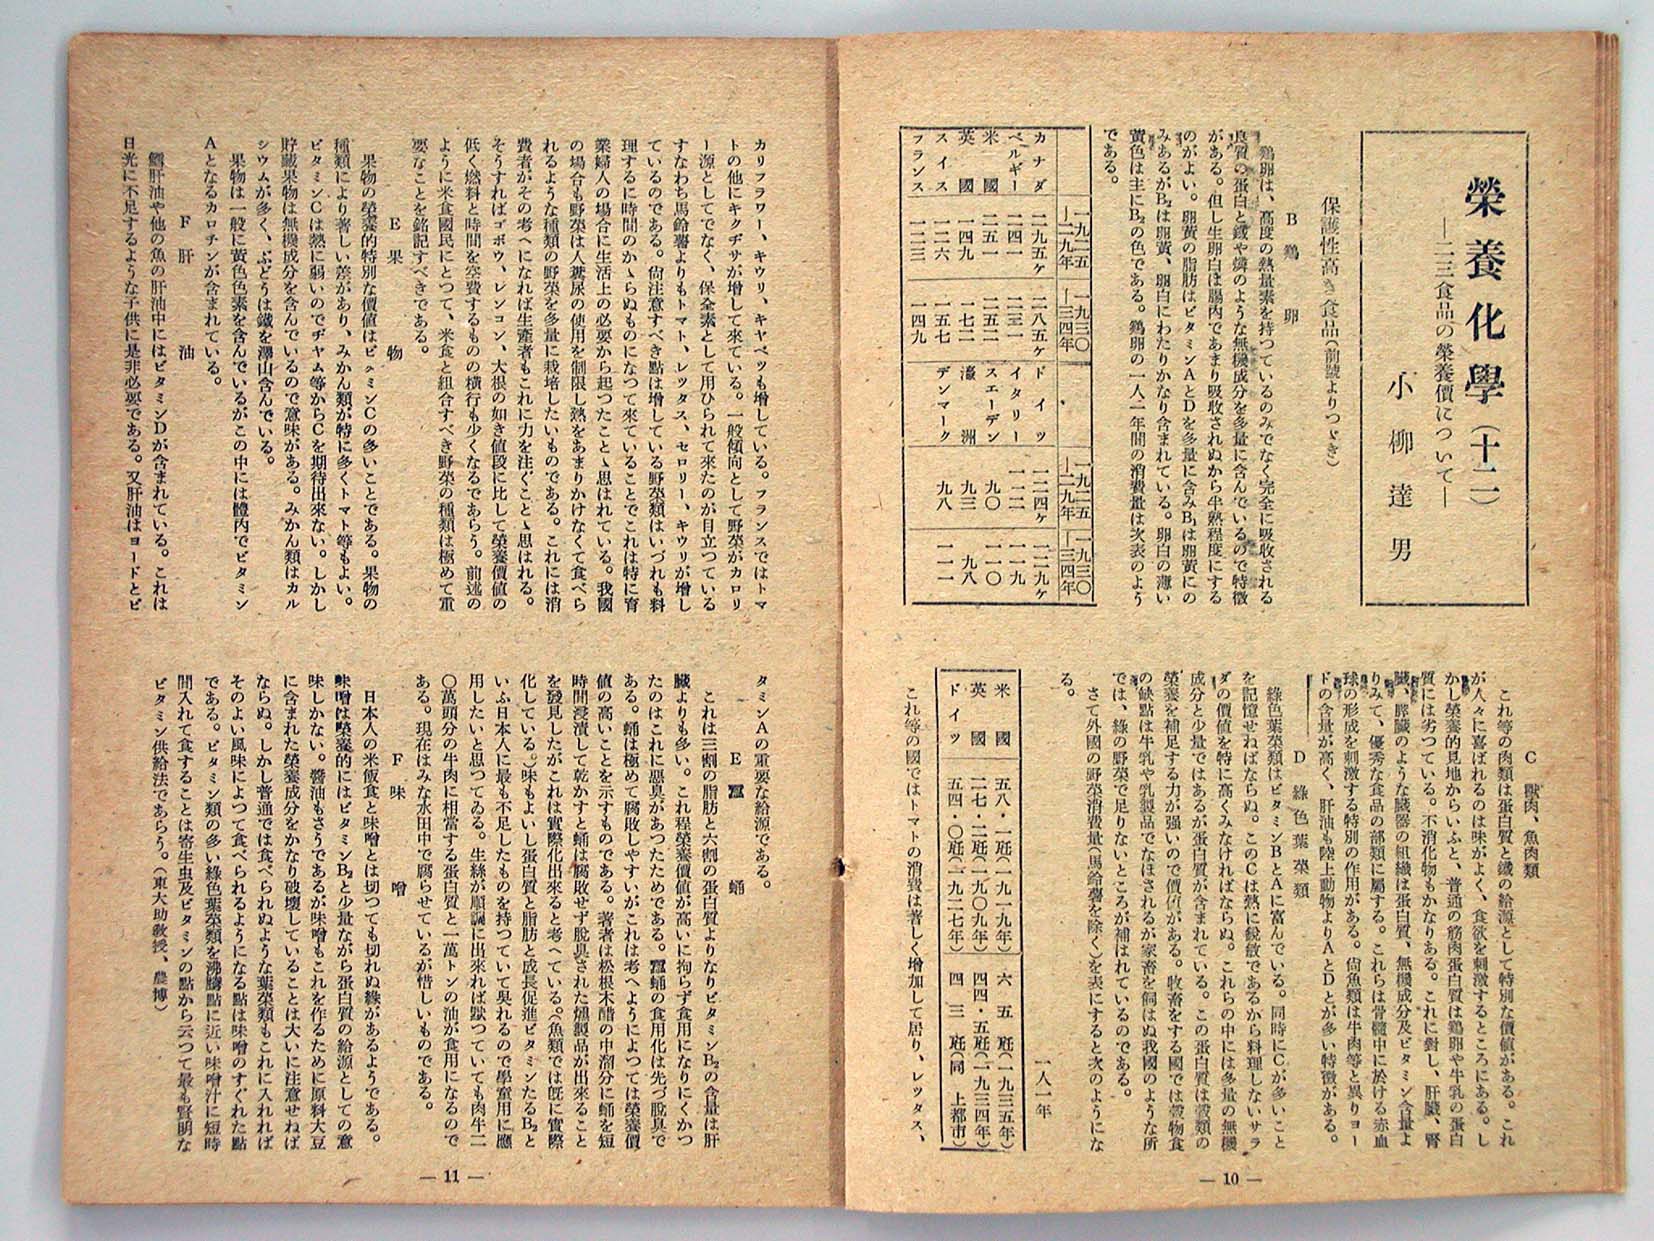 榮養化學(十二)
―二三食品の榮養價について―
小柳達男
保護性高き食品(前號よりつゞき)
B 鷄卵
鷄卵は、高度の熱量素を持つているのみでなく完全に吸收される
良質の蛋白と鐵や燐のような無機成分を多量に含んでいるので特徵
がある。但し生卵白は腸內であまり吸收されぬから半熟程度にする
のがよい。卵黃の脂肪はビタミンAとDを多量に含みB₁は卵黃にの
みあるがB₂は卵黃、卵白にわたりかなり含まれている。卵白の薄い
黃色は主にB₂の色である。鷄卵の一人一年間の消費量は次表のよう
である。
一九二五―二九年 一九三〇―三四年 一九二五―二九年 一九三〇―三四年
カナダ 二九五ヶ 二八五ヶ ドイツ 一二四ヶ 一二九ヶ
ベルギー 二四一 二三一 イタリー 一二二 一一九
米國 二五一 二五二 スエーデン 九〇 一一〇
英國 一四九 一七二 濠洲 九三 九八
スイス 一二六 一五七 デンマーク 九八 一一一
フランス 一三三 一四九
C 獸肉、魚肉類
これ等の肉類は蛋白質と鐵の給源として特別な價値がある。これ
が人々に喜ばれるのは味がよく、食欲を刺激するところにある。し
かし榮養的見地からいふと、普通の筋肉蛋白質は鷄卵や牛乳の蛋白
質には劣つている。不消化物もかなりある。これに對し、肝臟、腎
臟、膵臟のような臟器の組織は蛋白質、無機成分及ビタミン含量よ
りみて、優秀な食品の部類に屬する。これらは骨髓中に於ける赤血
球の形成を刺激する特別の作用がある。尙魚類は牛肉等と異りヨー
ドの含量が高く、肝油も陸上動物よりAとDとが多い特徵がある。
D 綠色葉菜類
綠色葉菜類はビタミンBとAに富んでいる。同時にCが多いこと
を記憶せねばならぬ。このCは熱に銳敏であるから料理しないサラ
ダの價値を特に高くみなければならぬ。これらの中には多量の無機
成分と少量ではあるが蛋白質が含まれている。この蛋白質は穀類の
榮養を補足する力が强いので價値がある。牧畜をする國では穀物食
の缺點は牛乳や乳製品でなほされるが家畜を飼はぬ我國のような所
では、綠の野菜で足りないところが補はれているのである。
さて外國の野菜消費量(馬鈴薯を除く)を表にすると次のようにな
る。
一人一年
米國 五八・一瓩(一九一九年) 六五瓩(一九三五年)
英國 二七・二瓩(一九〇九年) 四四・五瓩(一九三四年)
ドイツ 五四・〇瓩(一九二七年) 四三瓩(同 上都市)
これ等の國ではトマトの消費は著しく增加して居り、レッタス、
― 10 ―
カリフラワー、キウリ、キャベツも增している。フランスではトマ
トの他にキクヂサが增して來ている。一般傾向として野菜がカロリ
ー源としてでなく、保全素として用ひられて來たのが目立つている
すなわち馬鈴薯よりもトマト、レッタス、セロリー、キウリが增し
ているのである。尙注意すべき點は增している野菜類はいづれも料
理するに時間のかゝらぬものになつて來ていることでこれは特に育
業婦人の場合に生活上の必要から起つたことゝ思はれている。我國
の場合も野菜は人糞尿の使用を制限し熱をあまりかけなくて食べら
れるような種類の野菜を多量に栽培したいものである。これには消
費者がその考へになれば生產者もこれに力を注ぐことゝ思はれる。
そうすればゴボウ、レンコン、大根の如き値段に比して榮養價値の
低く燃料と時間を空費するものの橫行も少くなるであらう。前述の
ように米食國民にとつて、米食と組合すべき野菜の種類は極めて重
要なことを銘記すべきである。
E 果物
果物の榮養的特別な價値はビタミンCの多いことである。果物の
種類により著しい差があり、みかん類が特に多くトマト等もよい。
ビタミンCは熱に弱いのでヂャム等からCを期待出來ない。しかし
貯藏果物は無機成分を含んでいるので意味がある。みかん類はカル
シウムが多く、ぶどうは鐵を澤山含んでいる。
果物は一般に黃色色素を含んでいるがこの中には體內でビタミン
Aとなるカロチンが含まれている。
F 肝油
鱈肝油や他の魚の肝油中にはビタミンDが含まれている。これは
日光に不足するような子供に是非必要である。又肝油はヨードとビ
タミンAの重要な給源である。
E 蠶蛹
これは三割の脂肪と六割の蛋白質よりなりビタミンB₂の含量は肝
臟よりも多い。これ程榮養價値が高いに拘らず食用になりにくかつ
たのはこれに惡臭があつたためである。蠶蛹の食用化は先づ脫臭で
ある。蛹は極めて腐敗しやすいがこれは考へようによつては榮養價
値の高いことを示すものである。著者は松根木醋の中溜分に蛹を短
時間浸漬して乾かすと蛹は腐敗せず脫臭された燻製品が出來ること
を發見したがこれは實際化出來ると考へている。(魚類では既に實際
化している。)味もよいし蛋白質と脂肪と成長促進ビタミンたるB₂と
いふ日本人に最も不足したものを持つていて吳れるので學童用に應
用したいと思つてゐる。生絲が順調に出來れば默つていても肉牛二
〇萬頭分の牛肉に相當する蛋白質と一萬トンの油が食用になるので
ある。現在はみな水田中で腐らせているが惜しいものである。
F 味噌
日本人の米飯食と味噌とは切つても切れぬ緣があるようである。
味噌は榮養的にはビタミンB₂と少量ながら蛋白質の給源としての意
味しかない。醬油もさうであるが味噌もこれを作るために原料大豆
に含まれた榮養成分をかなり破壞していることは大いに注意せねば
ならぬ。しかし普通では食べられぬような葉菜類もこれに入れれば
そのよい風味によつて食べられるようになる點は味噌のすぐれた點
である。ビタミン類の多い綠色葉菜類を沸騰點に近い味噌汁に短時
間入れて食することは寄生虫及ビタミンの點から云つて最も賢明な
ビタミン供給法であらう。(東大助敎授、農博)
― 11 ―